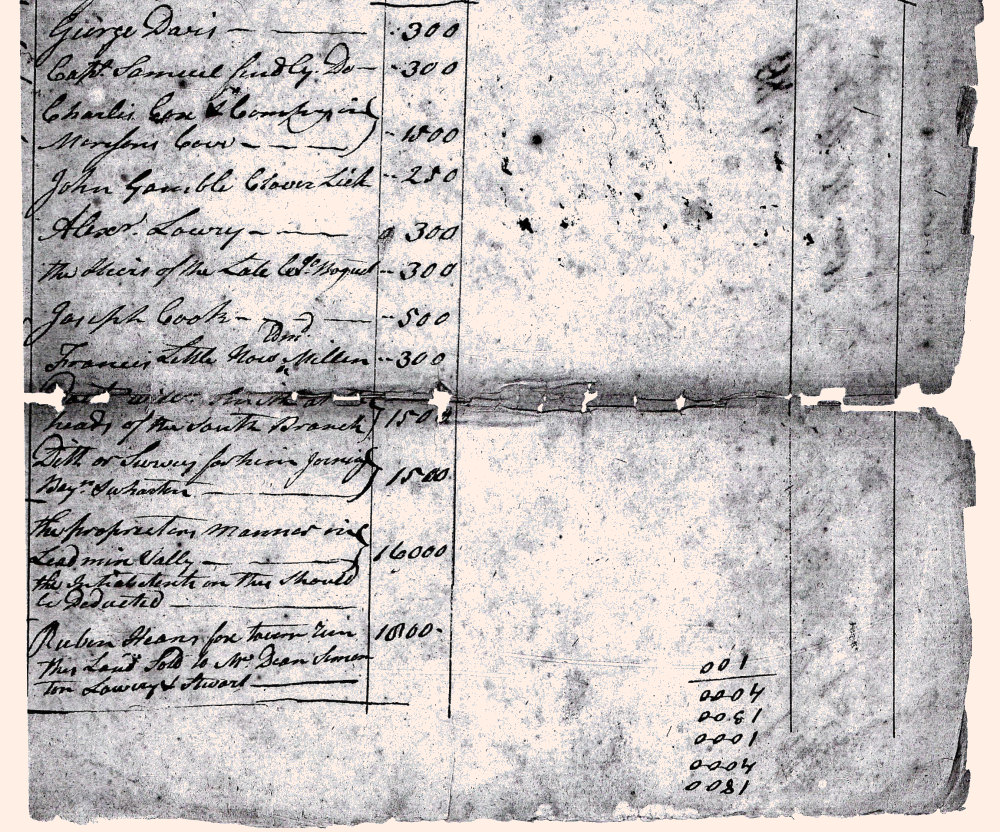 George Davis — — 300
Capt. Samuel findly Do — 300
Charlis Cox & Company in
Morisons Cove — — — 1500
John Gamble Clover Lick 250
Alexr. Lowry — — 300
the Heirs of the Late Colo. Boquet 300
Joseph Cook — — 500
Edmd
Francis Little Now Millin 300
Do Wm. Smith at
heads of the South Branch 1500
Ditto or Survey for him Joining
Wharton 1500
the proprietors Mannor in
Leadmin Vally — 16000
the Inhabetents on this Should
be Deducted —
Rubin Heans fox town Run 1000
this Land Sold to Mrs Dean Simon
ton Lowrey & Stwart —
1800
4000
1000
1800
4000
100